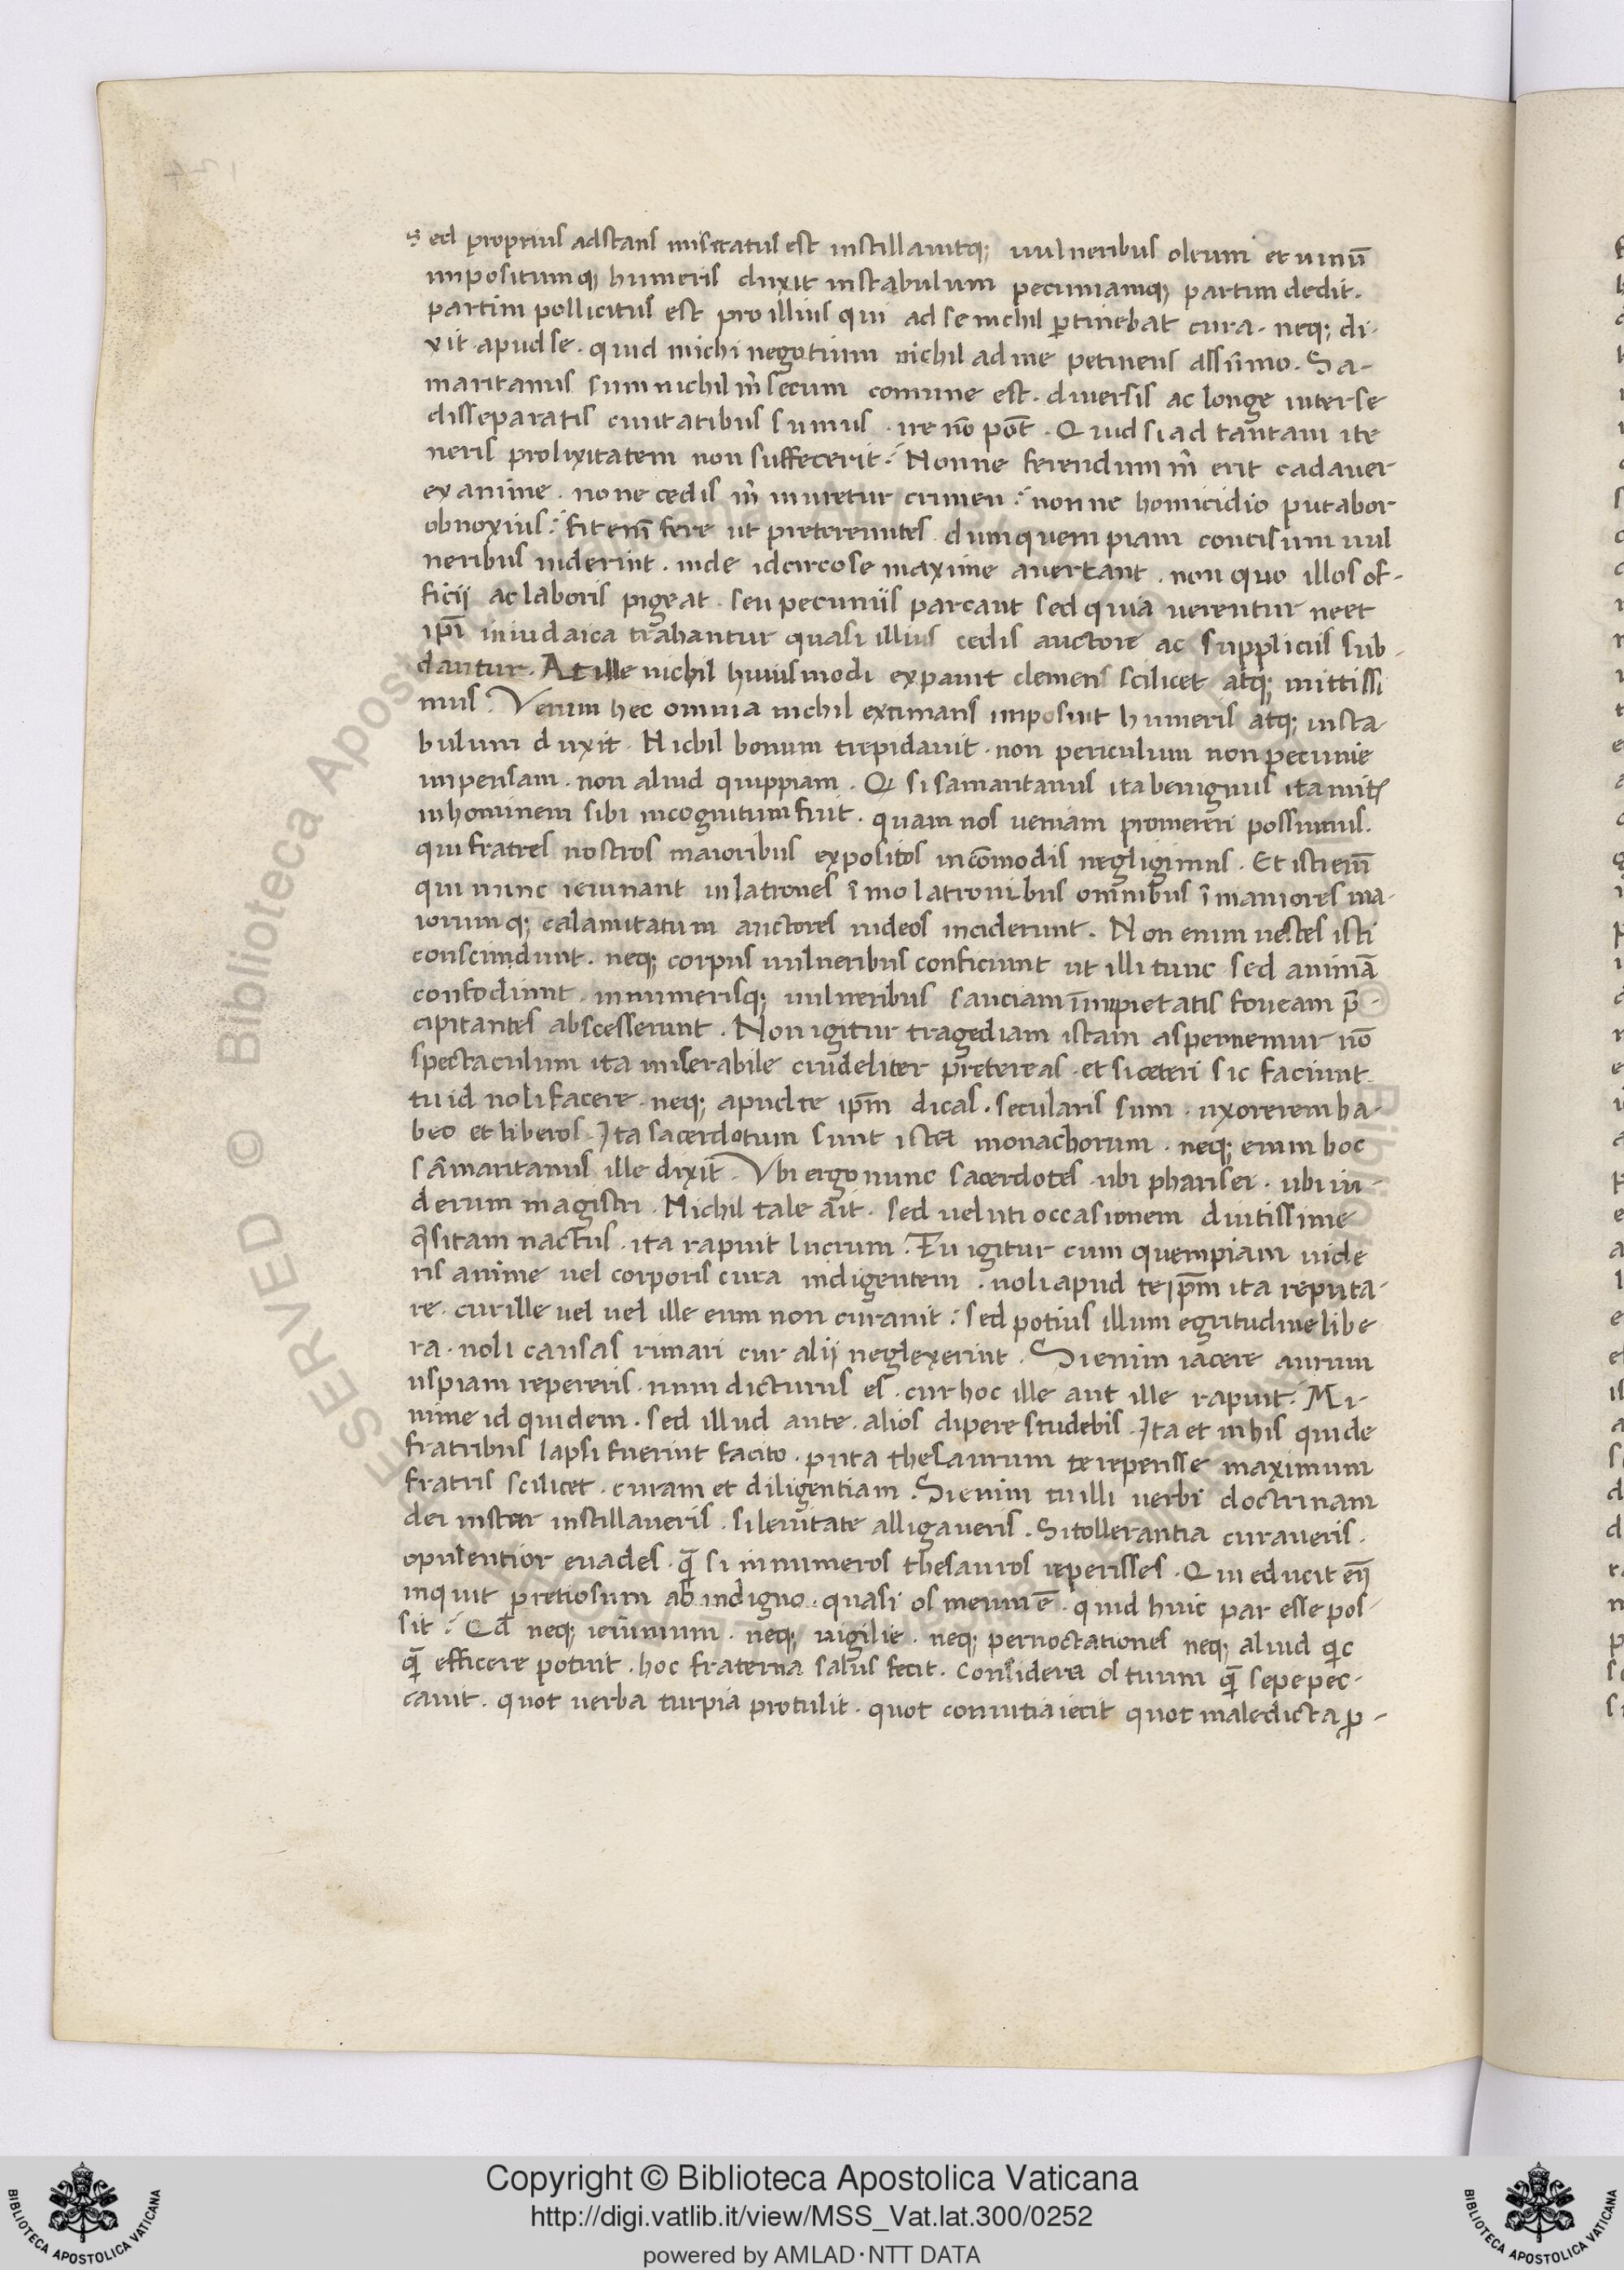 Sed proprius adstans miseratus est instillauitq; uulneribus oleum et uinū
impositumq; humeris duxit instabulum pecuniamq; partim dedit.
partim pollicitus est pro illius qui ad se nichil ꝑtinebat cura. neq; di-
xit apud se. quid michi negotium nichil ad me petinens assūmo. Sa-
maritanus sum nichil m̄ secum comune est. diuersis ac longe inter se
disseparatis ciuitatibus sumus. ire nō pōt. Quid si ad tantam ite
neris prolixitatem non suffecerit? Nonne ferendum m̄ erit cadauer
exanime. none cedis m̄ inuretur crimen? nonne homicidio putabor
obnoxius? fit em̄ fere ut pretereuntes dum quempiam concisum uul
neribus uiderint. inde idcirco se maxime auertant. non quo illos of-
ficij ac laboris pigeat. seu pecuniis parcant sed quia uerentur ne et
ip̄i in iudaica trahantur quasi illius cedis auctore ac suppliciis sub-
dantur. At ille nichil huiusmodi expauit clemens scilicet atq; mittissi
mus. Verum hec omnia nichil extimans imposuit humeris atq; insta
bulum duxit. Nichil bonum trepidauit. non periculum non pecunie
impensam. non aliud quippiam. Q si samaritanus ita benignus ita mitis
in hominem sibi incognitum fuit. quam nos ueniam promereri possumus.
qui fratres nostros maioribus expositos incōmodis negligimus. Et isti em̄
qui nunc ieiunant in latrones īmo latronibus omnibus īmaniores ma-
iorumq; calamitatum auctores iudeos inciderunt. Non enim uestes isti
conscindunt. neq; corpus uulneribus conficiunt ut illi tunc sed animā
confodiunt. innumerisq; uulneribus sauciam in impietatis foueam p̄-
cipitantes abscesserunt. Non igitur tragediam istam aspernemur nō
spectaculum ita miserabile crudeliter pretereas. et si ceteri sic faciunt
tu id noli facere. neq; apud te ip̄m dicas. secularis sum. uxorerem ha-
beo et liberos. Ita sacerdotum sunt ista monachorum. neq; enim hoc
samaritanus ille dixit. Vbi ergo nunc sacerdotes. ubi pharisei. ubi iu-
deorum magistri. Nichil tale ait. sed ueluti occasionem diutissime
q̄sitam nactus. ita rapuit lucrum. Tu igitur cum quempiam uide
ris anime uel corporis cura indigentem. noli apud te ip̄m ita reputa-
re. cur ille uel uel ille eum non curauit? sed potius illum egritudine libe
ra. noli causas rimari cur alij neglexerint. Si enim iacere aurum
uspiam repereris. num dicturus es. cur hoc ille aut ille rapuit? Mi-
nime id quidem. sed illud ante. alios dipere studebis. Ita et in his qui de
fratribus lapsi fuerint facito. puta thesaurum te reperisse maximum
fratris scilicet. curam et diligentiam. Si enim tu illi uerbi doctrinam
dei instar instillaueris. si lenitate alligaueris. Si tollerantia curaueris.
opulentior euades. q̄ si innumeros thesauros reperisses. Qui educit em̄
inquit pretiosum ab indigno. quasi os meum ē. quid huic par esse pos-
sit? Qd̄ neq; ieiunium. neq; uigilie. neq; pernoctationes neq; aliud q̄c
q̄ efficere potuit. hoc fraterna salus fecit. Considera os tuum q̄ sepe pec-
cauit. quot uerba turpia protulit. quot conuitia iecit quot maledicta ꝑ-
Copyright © Biblioteca Apostolica Vaticana
http://digi.vatlib.it/view/MSS_Vat.lat.300/0252
powered by AMLAD·NTT DATA
BIBLIOTECA APOSTOLICA VATICANA
BIBLIOTECA APOSTOLICA VATICANA